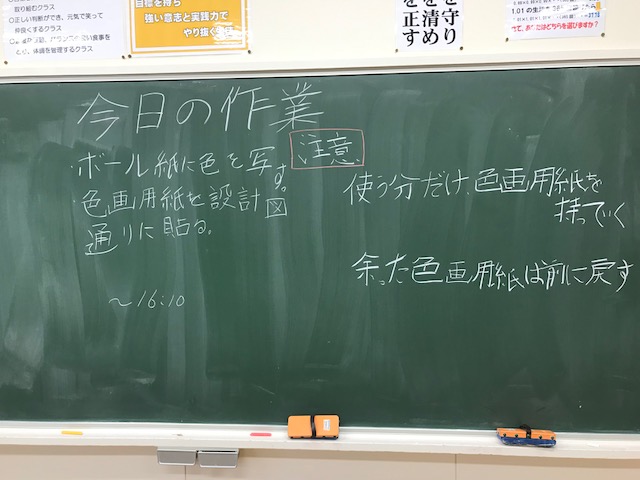 取り組むクラス
○正しい判断ができ、元気で笑って
仲良くするクラス
とり、体調を管理するクラス
目標を持ち
強い意志と実践力で
やり抜く
を守り
を清め
を正す
今日の作業
・ボール紙に色を写す。
・色画用紙を設計図
通りに貼る。
〜16:10
注意
使う分だけ、色画用紙を
持っていく
余った色画用紙は前に戻す